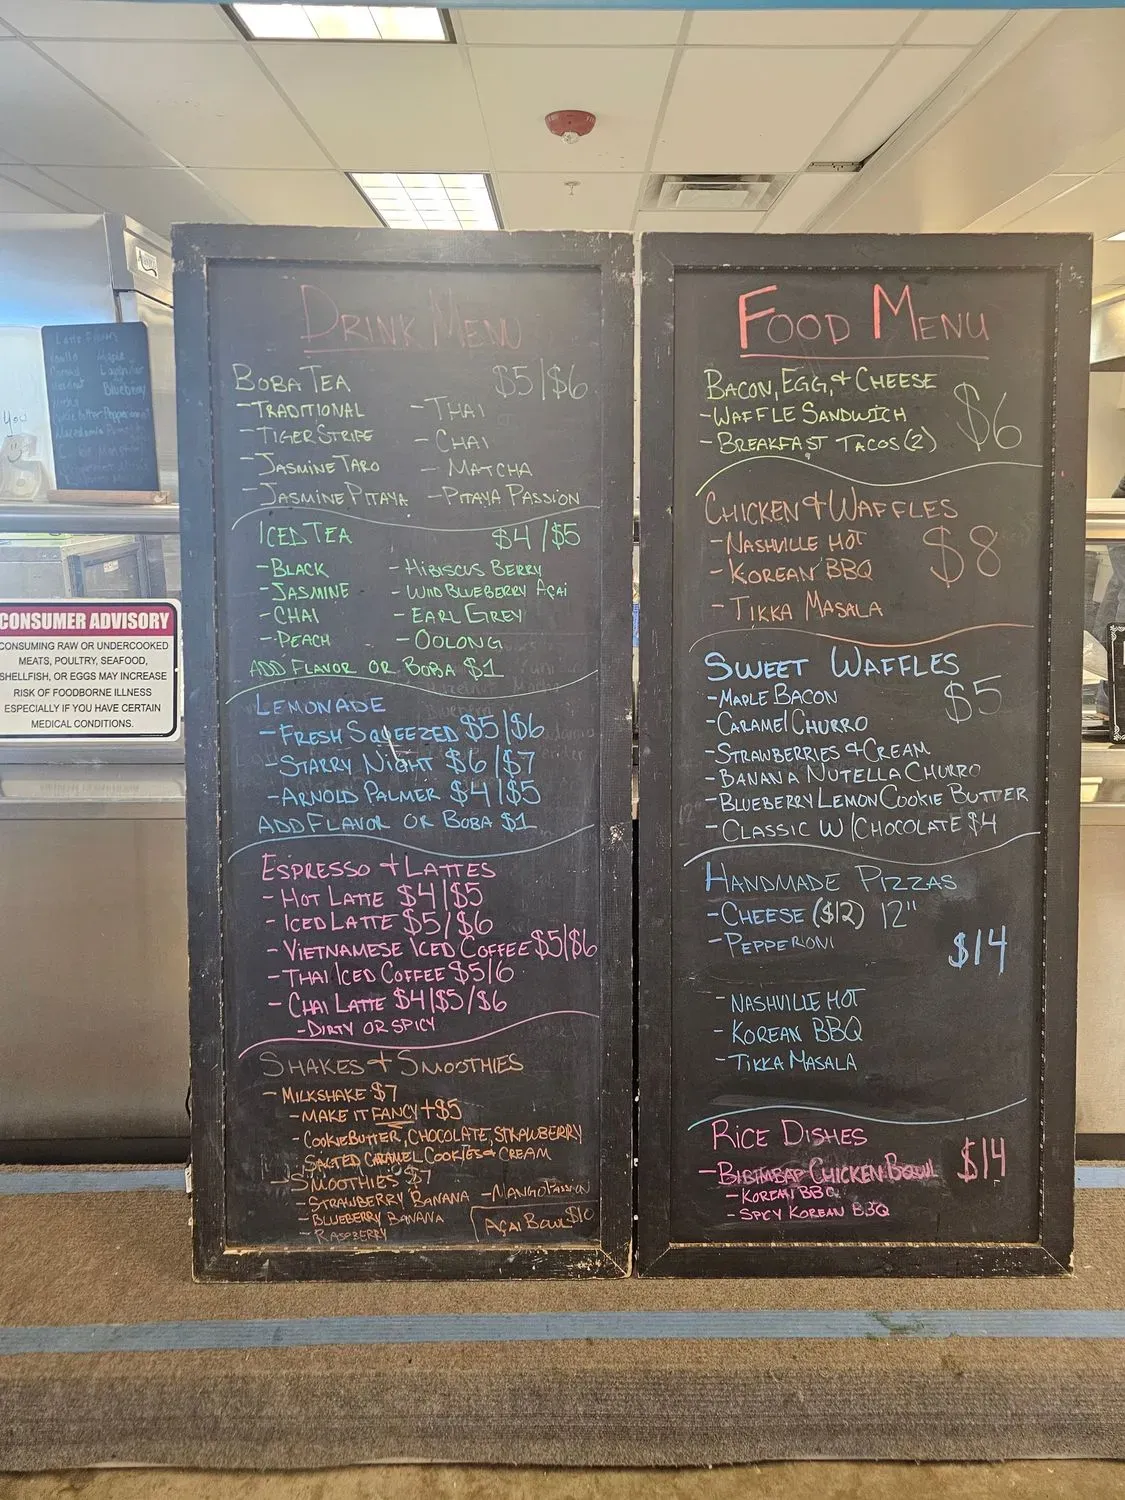 DRINK MENU
BOBA TEA $5/$6
-TRADITIONAL -THAI
-TIGER STRIPE -CHAI
-JASMINE TARO -MATCHA
-JASMINE PITAYA -PITAYA PASSION
ICED TEA $4/$5
-BLACK -HIBISCUS BERRY
-JASMINE -WILD BLUEBERRY AÇAI
-CHAI -EARL GREY
-PEACH -OOLONG
ADD FLAVOR OR BOBA $1
LEMONADE
-FRESH SQUEEZED $5/$6
-STARRY NIGHT $6/$7
-ARNOLD PALMER $4/$5
ADD FLAVOR OR BOBA $1
ESPRESSO + LATTES
-HOT LATTE $4/$5
-ICED LATTE $5/$6
-VIETNAMESE ICED COFFEE $5/$6
-THAI ICED COFFEE $5/6
-CHAI LATTE $4/$5/$6
-DIRTY OR SPICY
SHAKES + SMOOTHIES
-MILKSHAKE $7
-MAKE IT FANCY +$5
-COOKIE BUTTER, CHOCOLATE, STRAWBERRY
SALTED CARAMEL COOKIES + CREAM
-SMOOTHIES $7
-STRAWBERRY BANANA -MANGO PASSION
-BLUEBERRY BANANA
-RASPBERRY
AÇAI BOWL $10
FOOD MENU
BACON, EGG, + CHEESE
-WAFFLE SANDWICH $6
-BREAKFAST TACOS (2)
CHICKEN + WAFFLES
-NASHVILLE HOT $8
-KOREAN BBQ
-TIKKA MASALA
SWEET WAFFLES
-MAPLE BACON $5
-CARAMEL CHURRO
-STRAWBERRIES + CREAM
-BANANA NUTELLA CHURRO
-BLUEBERRY LEMON COOKIE BUTTER
-CLASSIC W/CHOCOLATE $4
HANDMADE PIZZAS
-CHEESE ($12) 12"
-PEPPERONI $14
-NASHVILLE HOT
-KOREAN BBQ
-TIKKA MASALA
RICE DISHES
-BIBIMBAP CHICKEN BOWL $14
-KOREAN BBQ
-SPICY KOREAN BBQ
CONSUMER ADVISORY
CONSUMING RAW OR UNDERCOOKED
MEATS, POULTRY, SEAFOOD,
SHELLFISH, OR EGGS MAY INCREASE
RISK OF FOODBORNE ILLNESS
ESPECIALLY IF YOU HAVE CERTAIN
MEDICAL CONDITIONS.
Blueberry
You